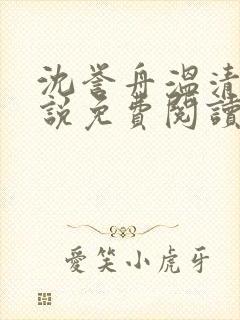 沈誉舟溫清
說免費閱讀
愛笑小虎牙